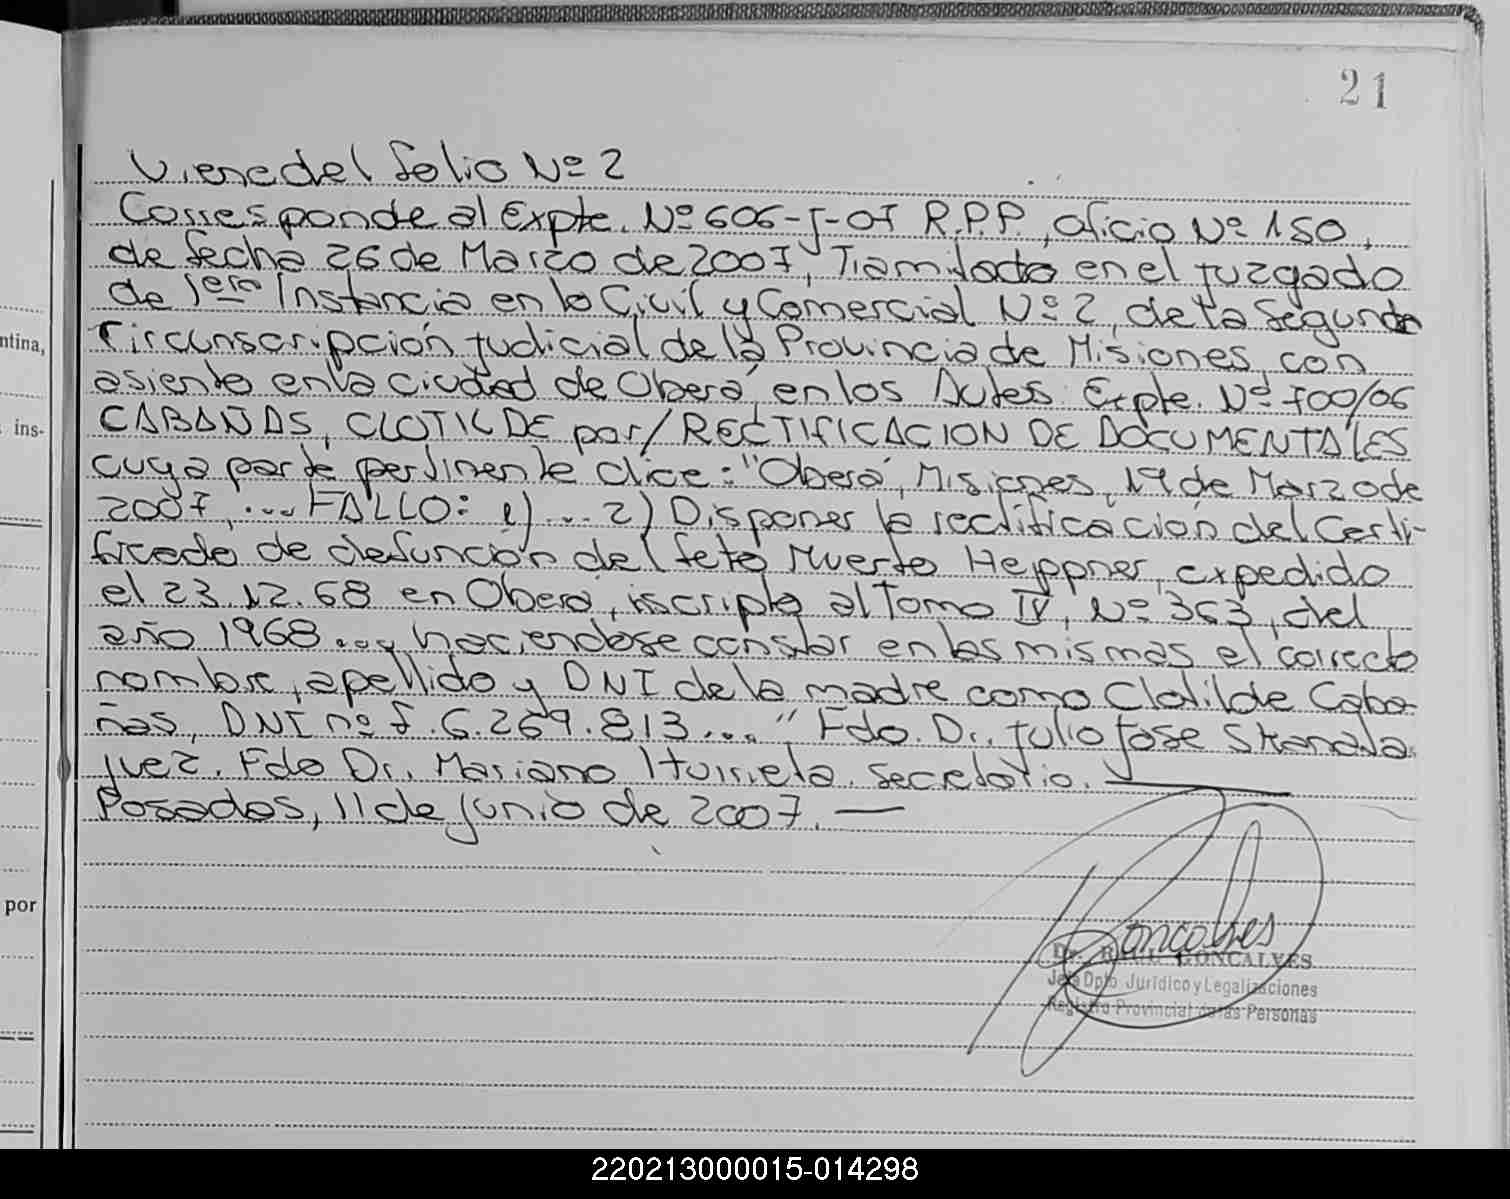 21
Viene del folio Nº 2
Corresponde al Expte. Nº 606-J-07 R.P.P., oficio Nº 150,
de fecha 26 de Marzo de 2007, Tramitado en el Juzgado
de 1era Instancia en lo Civil y Comercial Nº 2, de la Segunda
Circunscripción Judicial de la Provincia de Misiones, con
asiento en la ciudad de Oberá, en los Autos: Expte. Nº 700/06
CABAÑAS, CLOTILDE por/RECTIFICACION DE DOCUMENTALES
cuya parte pertinente dice: "Oberá, Misiones, 19 de Marzo de
2007, ... FALLO: 1) ... 2) Disponer la rectificación del Certi-
ficado de defunción del feto Muerto Heppner, expedido
el 23.12.68 en Oberá, iscripto al Tomo IV, Nº 363, del
año 1968 ... y haciendose constar en los mismos el correcto
nombre, apellido y DNI de la madre como Clotilde Caba-
ñas, DNI nº f. 6.269.813...." Fdo. Dr. Julio Jose
Juez. Fdo Dr. Mariano Iturrieta. Secretario.
Posadas, 11 de junio de 2007.
ntina,
ins-
por
Goncalves
Dr. GONCALVES
Jefe Dpto. Jurídico y Legalizaciones
Registro Provincial de las Personas
220213000015-014298